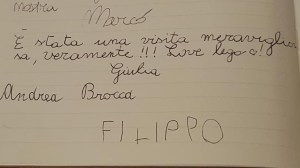 Mostra
Marcó
È stata una visita meraviglio-
sa, veramente!!! Love lego!
Giulia
Andrea Brocca
FILIPPO